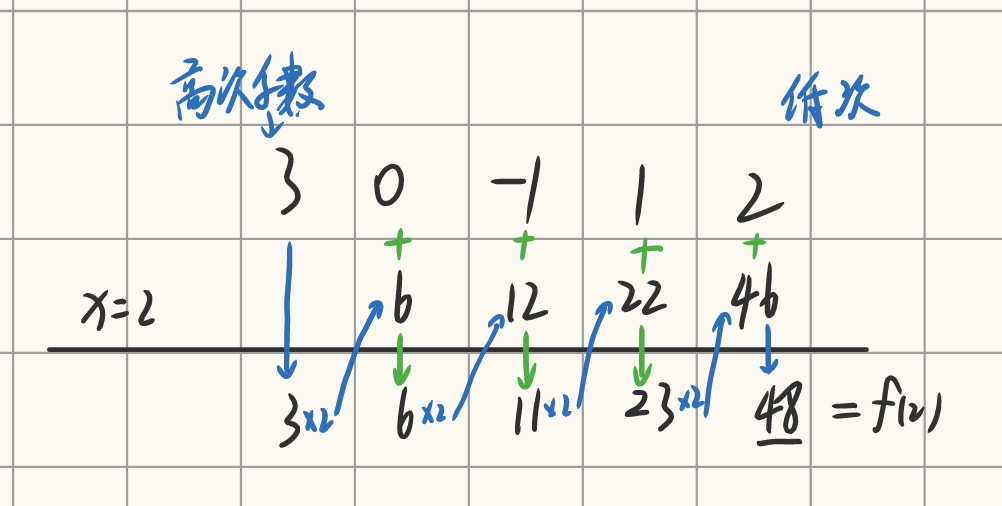 高次系数 低次
3 0 -1 1 2
+ + + +
x=2 6 12 22 46
3 ×2 6 ×2 11 ×2 23 ×2 48 = f(2)